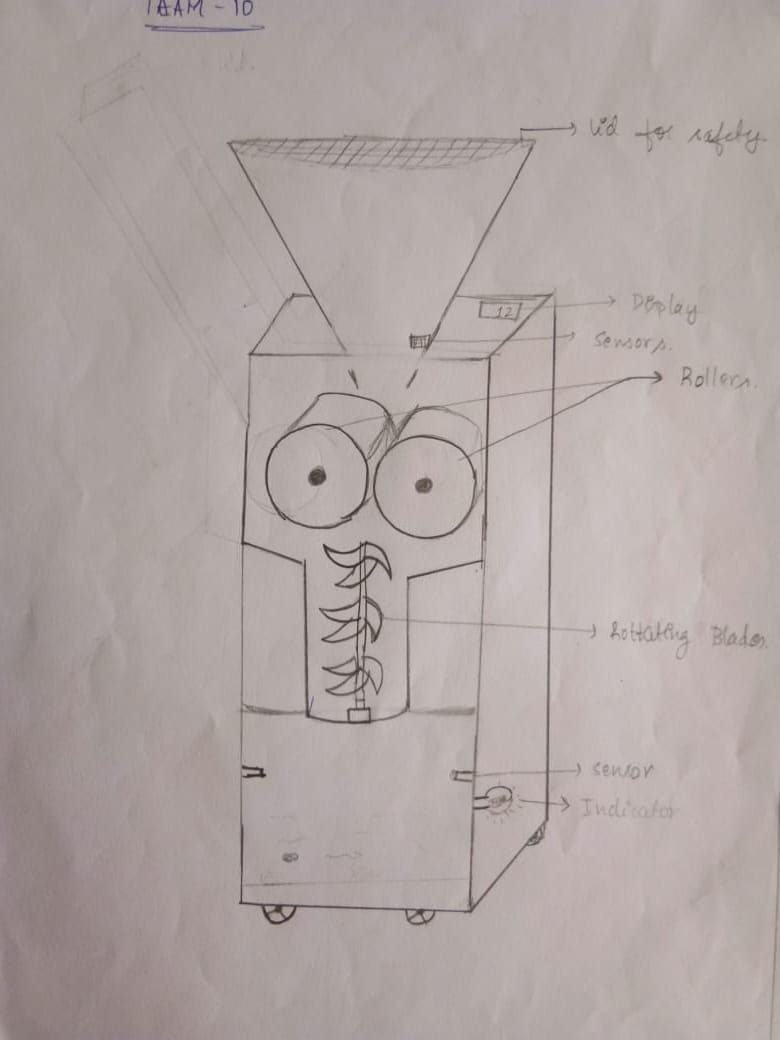 TEAM - 10
Lid for safety
Display
12
Sensors.
Rollers.
Rottating Blades.
sensor
Indicator